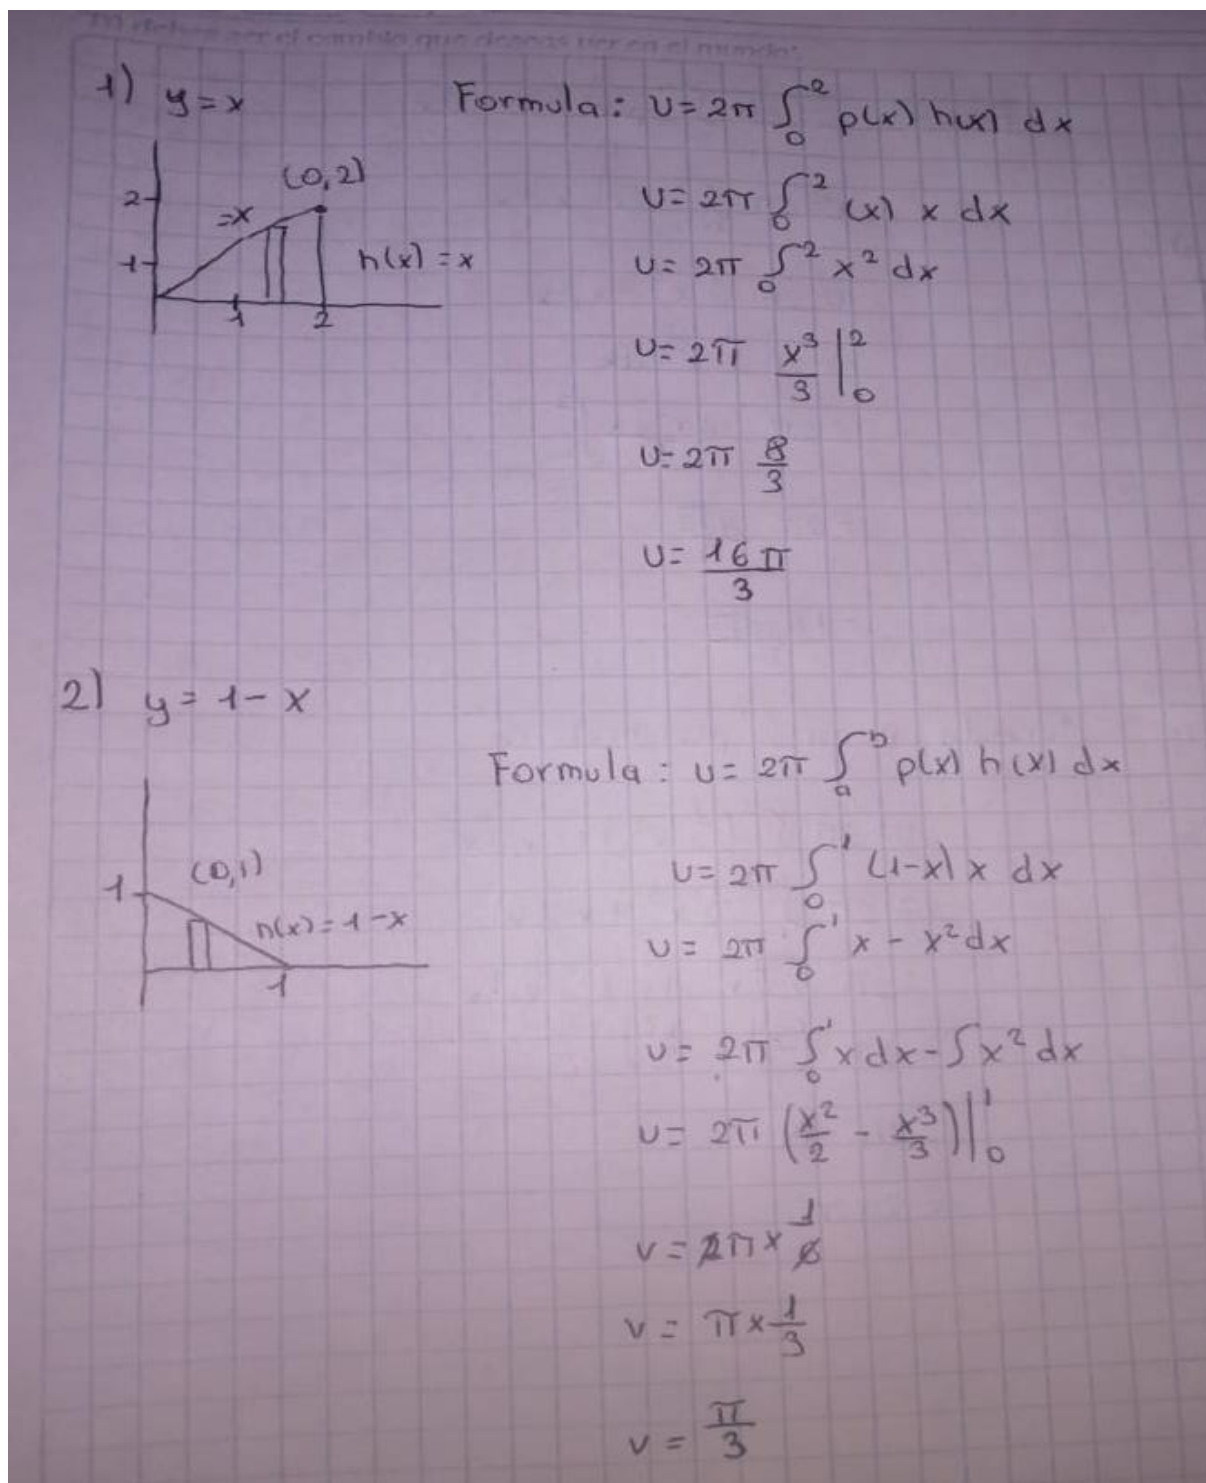 Tú debes ser el cambio que deseas ver en el mundo.
1) y = x
Formula: V = 2π ∫₀² p(x) h(x) dx
(0,2)
2
=x
1
h(x) = x
1 2
V = 2π ∫₀² (x) x dx
V = 2π ∫₀² x² dx
V = 2π x³/3 |₀²
V = 2π 8/3
V = 16π/3
2) y = 1 - x
Formula: V = 2π ∫ₐᵇ p(x) h(x) dx
(0,1)
1
h(x) = 1 - x
1
V = 2π ∫₀¹ (1-x) x dx
V = 2π ∫₀¹ x - x² dx
V = 2π ∫₀¹ x dx - ∫ x² dx
V = 2π (x²/2 - x³/3) |₀¹
V = 2π × 1/6
V = π × 1/3
V = π/3